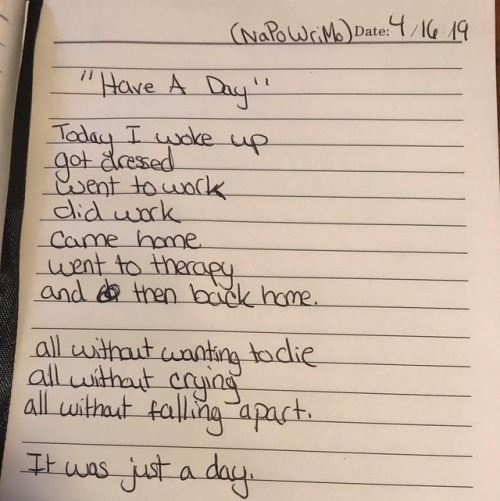 (NaPoWriMo) Date: 4/16/19
"Have A Day"
Today I woke up
got dressed
went to work
did work
came home
went to therapy
and then back home.
all without wanting to die
all without crying
all without falling apart.
It was just a day.